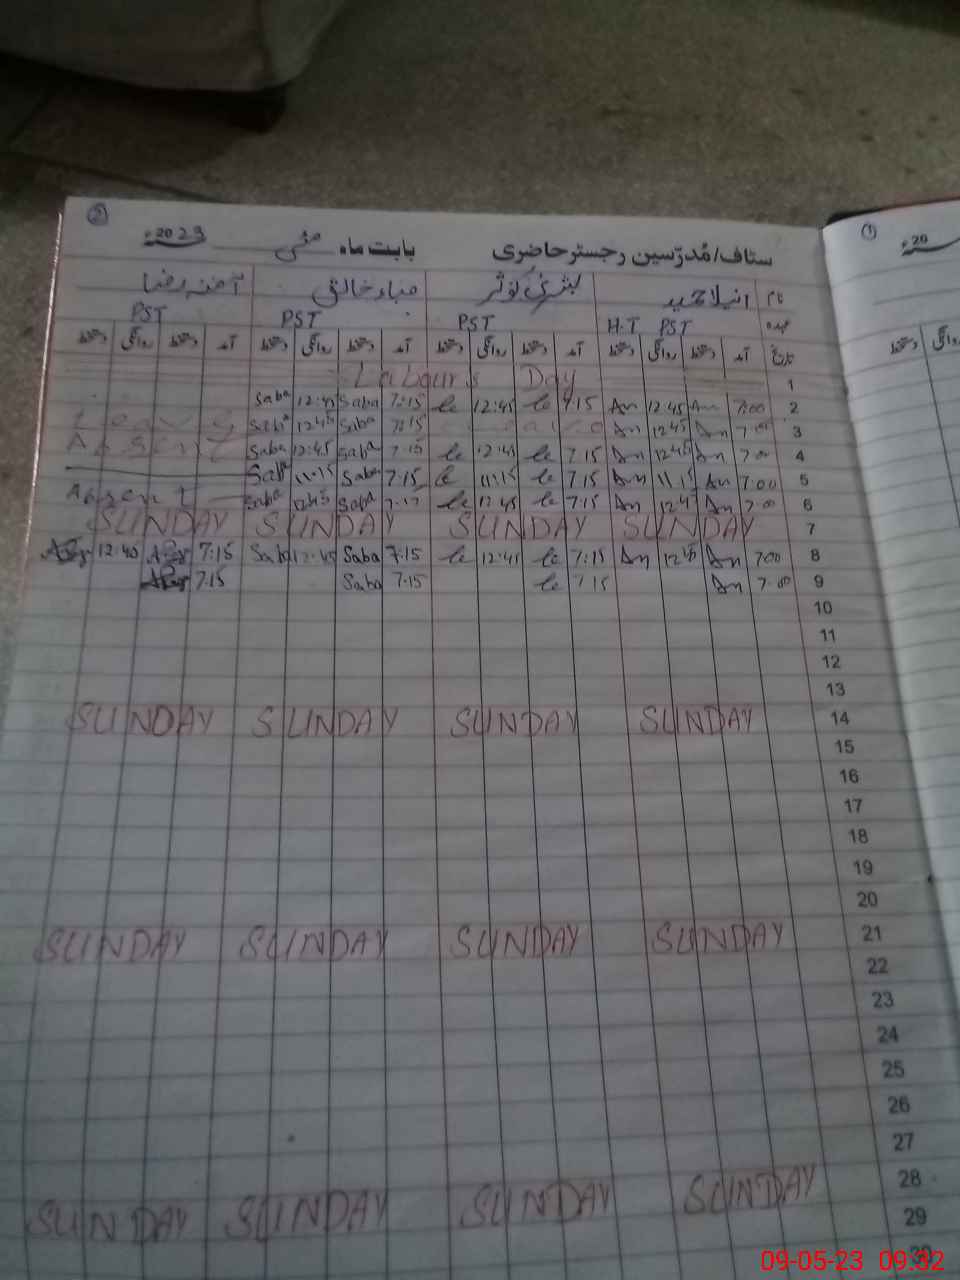 2
1
ستاف/مُدرّسین رجسٹر حاضری بابت ماہ مئی 2023ء
20ء
نام انیلا حمید بشریٰ کوثر صباء خالق آمنہ رضا
عہدہ H.T PST PST PST PST
تاریخ آمد دستخط روانگی دستخط آمد دستخط روانگی دستخط آمد دستخط روانگی دستخط آمد دستخط روانگی دستخط
روانگی دستخط
Labour's Day 1
Saba 12:45 Saba 7:15 le 12:45 le 7:15 An 12 45 An 7:00 2
Leave Saba 12 45 Saba 7:15 An 12 45 An 7:00 3
Absent Saba 12:45 Saba 7:15 le 12:45 le 7.15 An 12 45 An 7:00 4
Saba 11:15 Saba 7.15 le 11:15 le 7.15 An 11.15 An 7:00 5
Absent Saba 12 45 Saba le 12 45 le 7:15 An 12 45 An 7:00 6
SUNDAY SUNDAY SUNDAY SUNDAY 7
12:40 7:15 Saba 12:45 Saba 7:15 le 12:45 le 7:15 An 12 45 An 7:00 8
7.15 Saba 7.15 le 7.15 An 7:00 9
10
11
12
13
SUNDAY SUNDAY SUNDAY SUNDAY 14
15
16
17
18
19
20
SUNDAY SUNDAY SUNDAY SUNDAY 21
22
23
24
25
26
27
SUNDAY SUNDAY SUNDAY SUNDAY 28
29
30
09-05-23 09:32